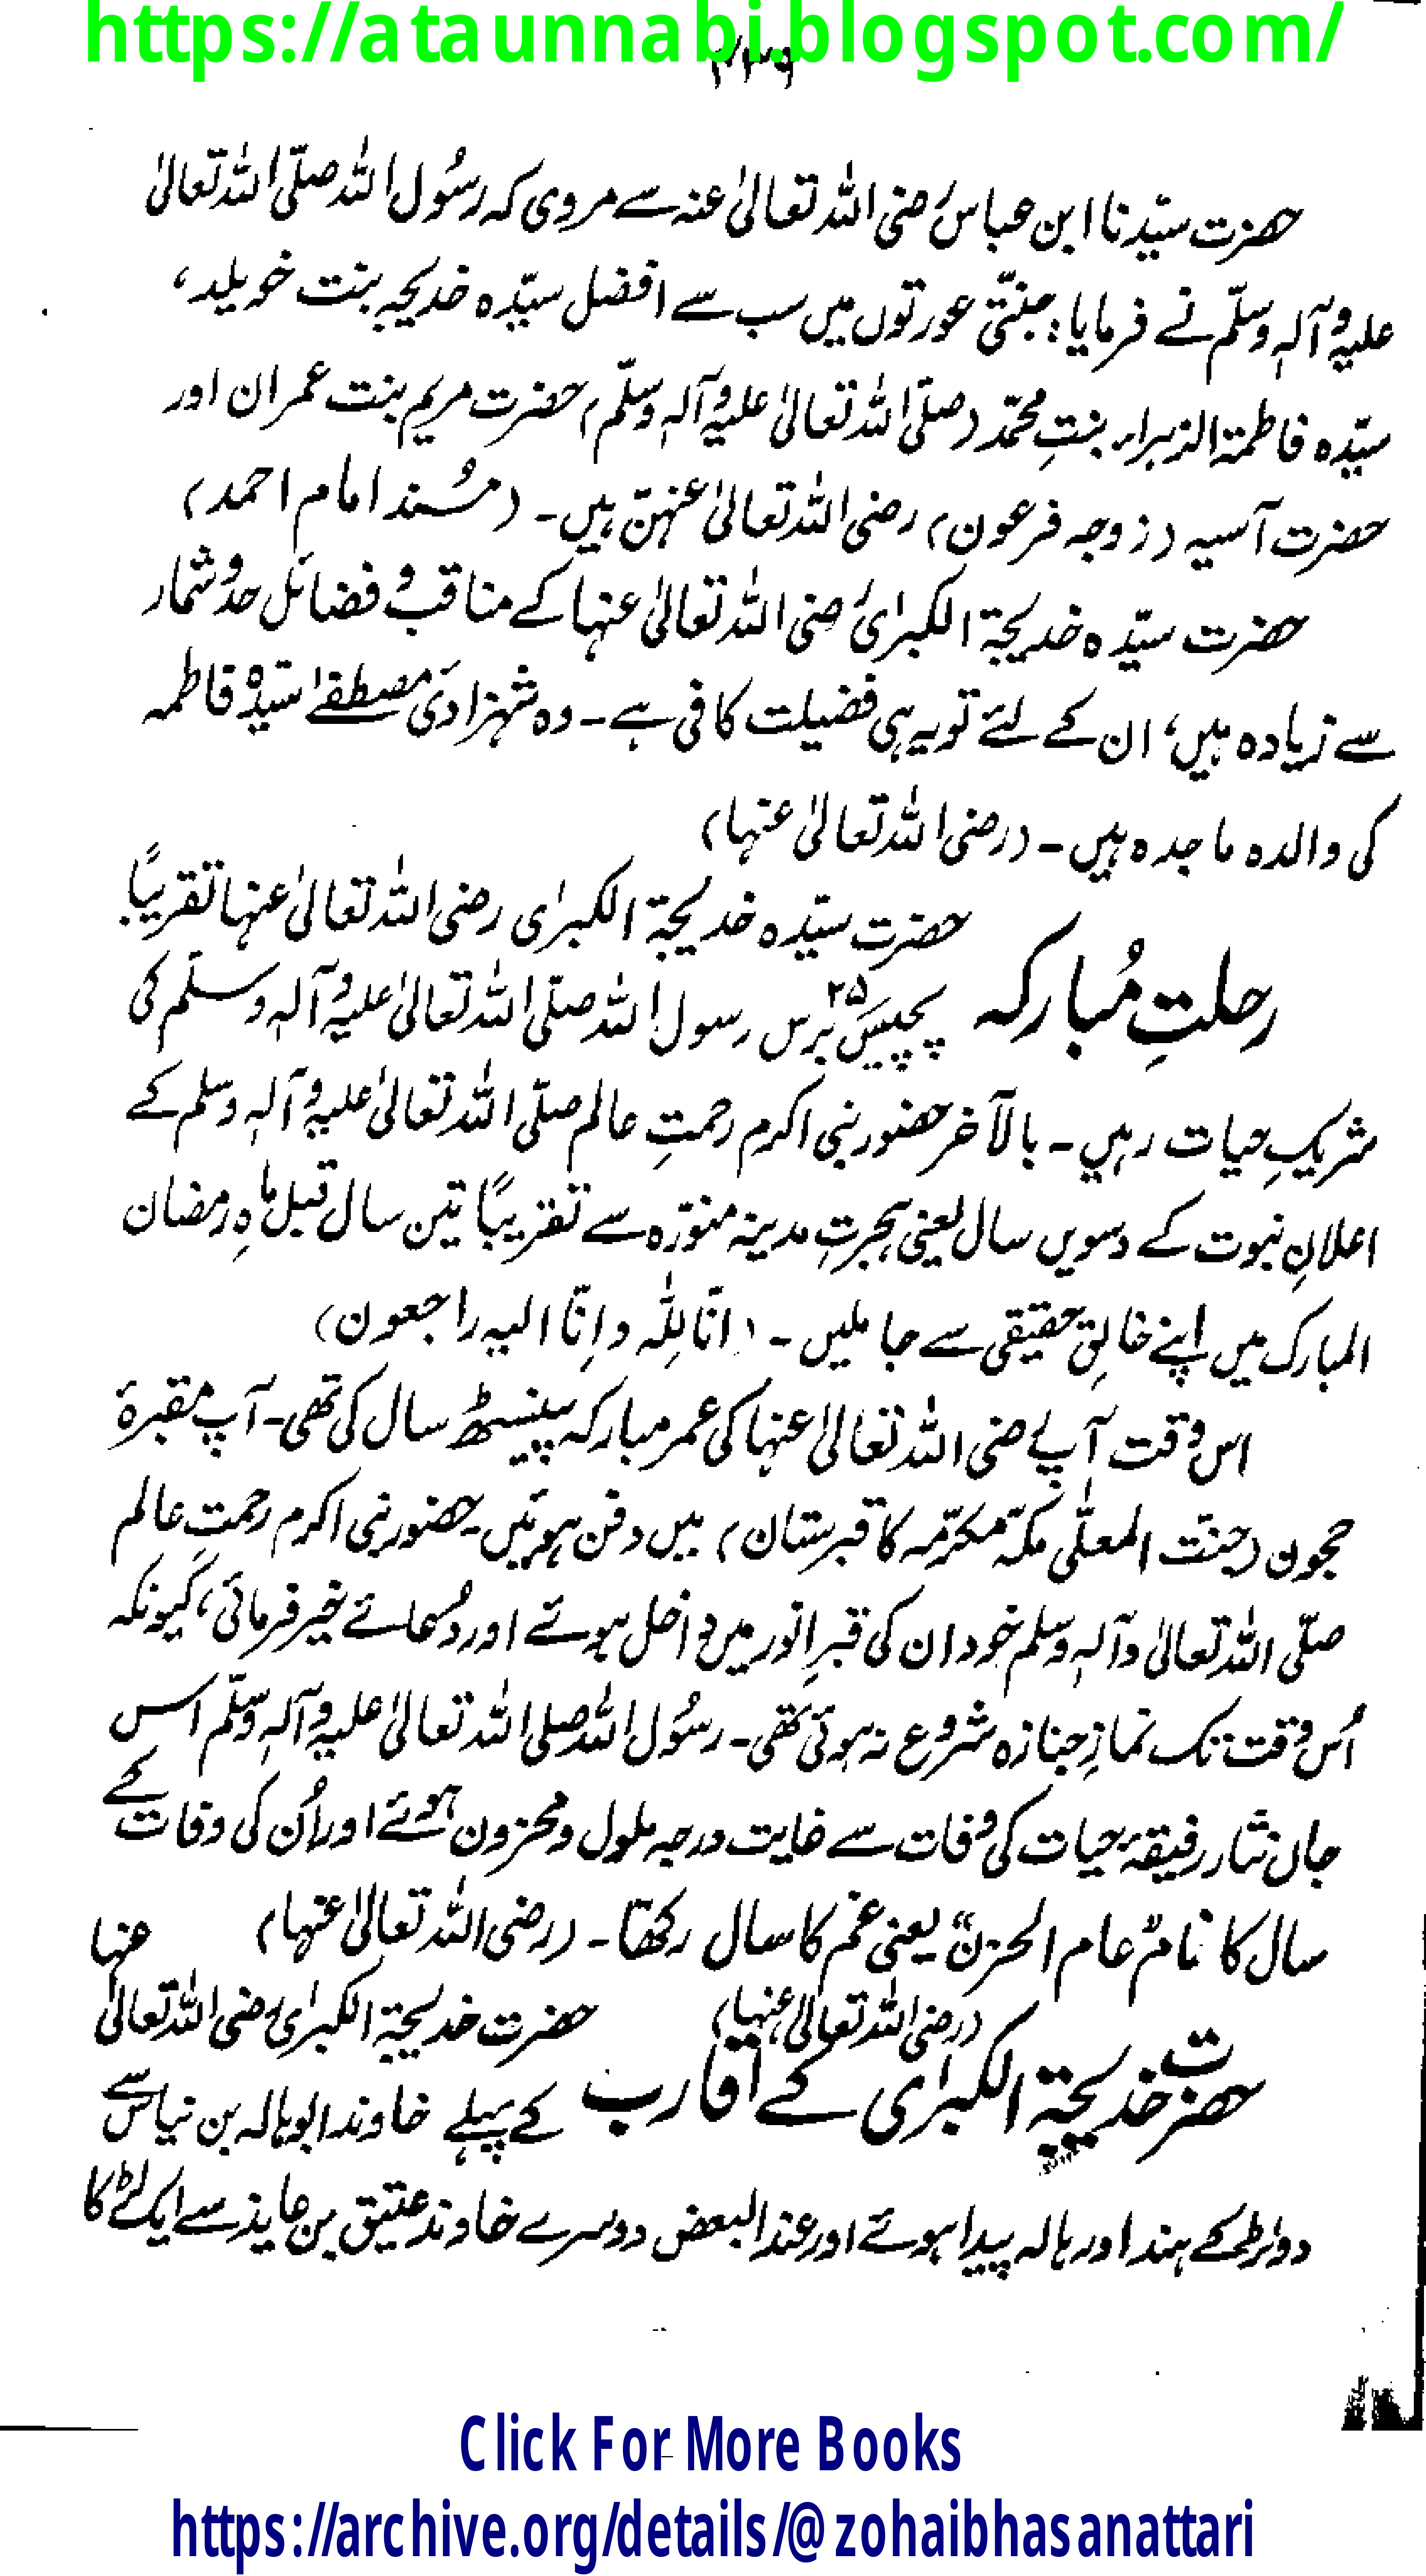 https://ataunnabi.blogspot.com/
۲۳۹
حضرت سیّدنا ابن عباس رضی اللہ تعالیٰ عنہ سے مروی کہ رسُول اللہ صلّی اللہ تعالیٰ
علیہ وآلہٖ وسلّم نے فرمایا: جنتّی عورتوں میں سب سے افضل سیّدہ خدیجہ بنت خویلد،
سیّدہ فاطمۃ الزہراء بنتِ محمّد (صلّی اللہ تعالیٰ علیہ وآلہٖ وسلّم) حضرت مریم بنت عمران اور
حضرت آسیہ (زوجہ فرعون) رضی اللہ تعالیٰ عنہنّ ہیں۔ (مُسند امام احمد)
حضرت سیّدہ خدیجۃ الکبرٰی رضی اللہ تعالیٰ عنہا کے مناقب و فضائل حد و شمار
سے زیادہ ہیں، ان کے لئے تو یہ ہی فضیلت کافی ہے۔ وہ شہزادیٔ مصطفےٰ سیّدہ فاطمہ
کی والدہ ماجدہ ہیں۔ (رضی اللہ تعالیٰ عنہا)
رحلتِ مُبارکہ حضرت سیّدہ خدیجۃ الکبرٰی رضی اللہ تعالیٰ عنہا تقریباً
پچیس ۲۵ برس رسول اللہ صلّی اللہ تعالیٰ علیہ وآلہٖ وسلّم کی
شریکِ حیات رہیں۔ بالآخر حضور نبی اکرم رحمتِ عالم صلّی اللہ تعالیٰ علیہ وآلہٖ وسلم کے
اعلانِ نبوت کے دسویں سال یعنی ہجرتِ مدینہ منوّرہ سے تقریباً تین سال قبل ماہِ رمضان
المبارک میں اپنے خالقِ حقیقی سے جا ملیں۔ (انّا للہ و اِنّا الیہ راجعون)
اس وقت آپ رضی اللہ تعالیٰ عنہا کی عمر مبارکہ پینسٹھ سال کی تھی۔ آپ مقبرۂ
حجون (جنّت المعلّٰی مکّہ مکرّمہ کا قبرستان) میں دفن ہوئیں۔ حضور نبی اکرم رحمتِ عالم
صلّی اللہ تعالیٰ وآلہٖ وسلم خود ان کی قبرِ انور میں داخل ہوئے اور دُعائے خیر فرمائی، کیونکہ
اُس وقت تک نمازِ جنازہ شروع نہ ہوئی تھی۔ رسُول اللہ صلی اللہ تعالیٰ علیہ وآلہٖ وسلّم اس
جاں نثار رفیقۂ حیات کی وفات سے غایت درجہ ملول و محزون ہوئے اور اُن کی وفات کے
سال کا نام "عام الحزن" یعنی غم کا سال رکھا۔ (رضی اللہ تعالیٰ عنہا)
حضرت خدیجۃ الکبرٰی (رضی اللہ تعالیٰ عنہا) کے اقارب حضرت خدیجۃ الکبرٰی رضی اللہ تعالیٰ عنہا
کے پہلے خاوند ابوہالہ بن نباس سے
دو لڑکے ہند اور ہالہ پیدا ہوئے اور عند البعض دوسرے خاوند عتیق بن عایذ سے ایک لڑکا
Click For More Books
https://archive.org/details/@zohaibhasanattari